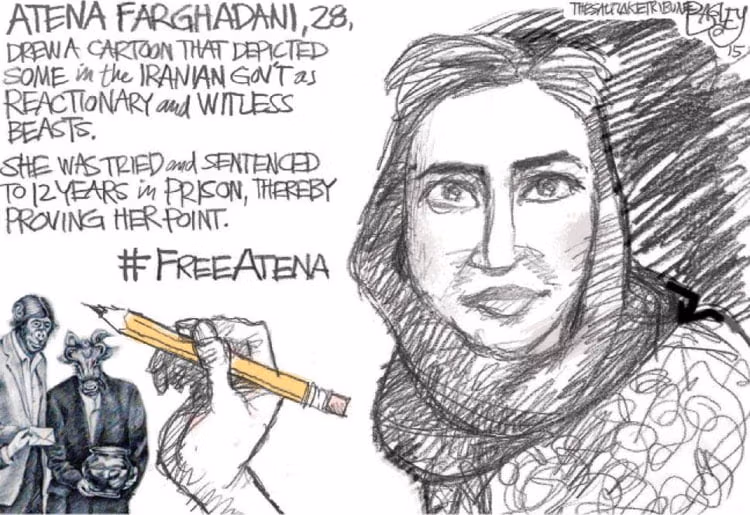 ATENA FARGHADANI, 28,
DREW A CARTOON THAT DEPICTED
SOME in the IRANIAN GOV'T as
REACTIONARY and WITLESS
BEASTS.
SHE WAS TRIED and SENTENCED
TO 12 YEARS in PRISON, THEREBY
PROVING HER POINT.
#FREEATENA
THESALTLAKETRIBUNE
BAGLEY
15